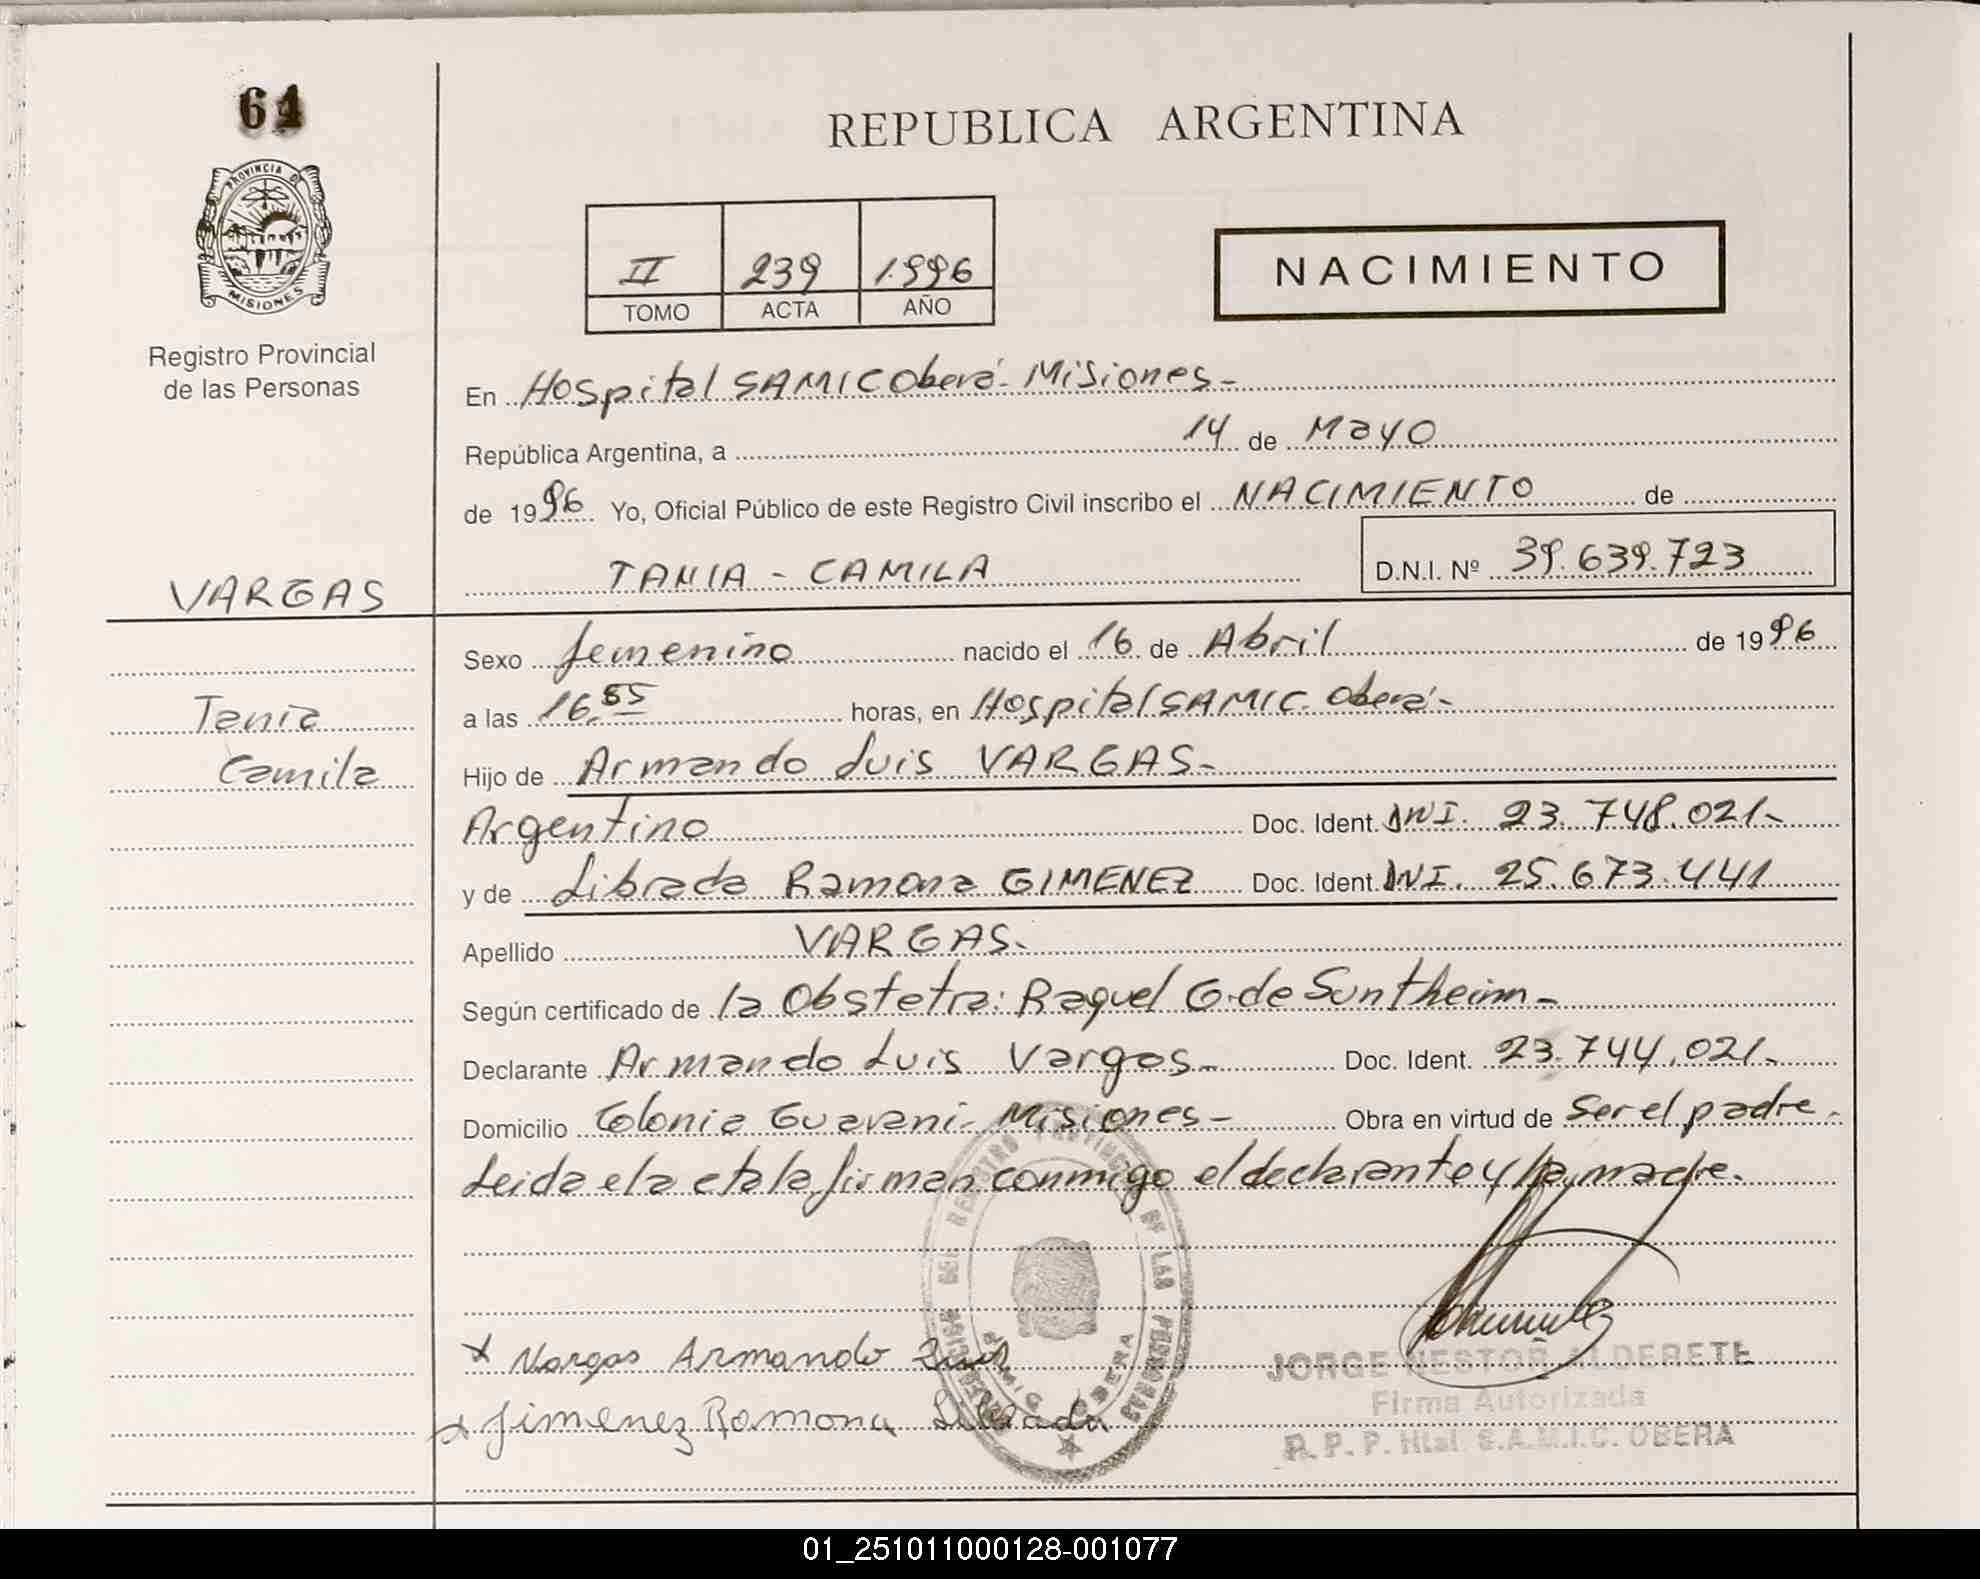 64
REPUBLICA ARGENTINA
PROVINCIA DE
MISIONES
II 239 1.996
TOMO ACTA AÑO
NACIMIENTO
Registro Provincial
de las Personas
En Hospital SAMIC Oberá - Misiones -
República Argentina, a 14 de Mayo
de 1996 Yo, Oficial Público de este Registro Civil inscribo el NACIMIENTO de
TANIA - CAMILA D.N.I. Nº 39.639.723
VARGAS
Sexo femenino nacido el 16 de Abril de 1996
Tania
Camila
a las 16.55 horas, en Hospital SAMIC. Oberá -
Hijo de Armando Luis VARGAS -
Argentino Doc. Ident. DNI. 23.748.021 -
y de Librada Ramona GIMENEZ Doc. Ident. DNI. 25.673.441
Apellido VARGAS -
Según certificado de la Obstetra: Raquel G. de Suntheim -
Declarante Armando Luis Vargas - Doc. Ident. 23.744.021 -
Domicilio Colonia Guarani - Misiones - Obra en virtud de Ser el padre.
Leida el acta la firman conmigo el declarante y la madre.
x Vargas Armando Luis
x Jimenez Ramona Librada
REGISTRO PROVINCIAL DE LAS PERSONAS
OBERA
JORGE NESTOR ALDERETE
Firma Autorizada
R. P. P. Htal S.A.M.I.C. OBERA
01_251011000128-001077